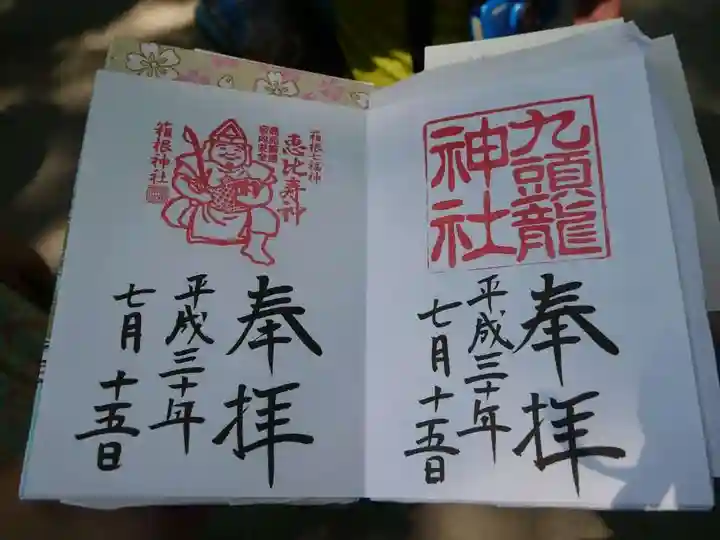 九頭龍
神社
奉拝
平成三十年
七月十五日
箱根七福神
恵比寿神
箱根神社
奉拝
平成三十年
七月十五日